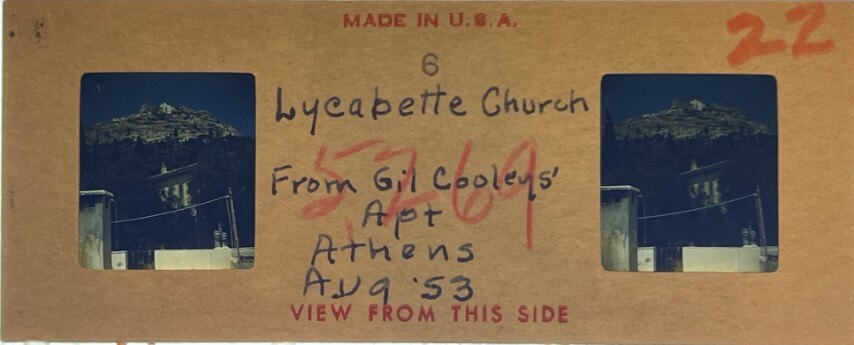 MADE IN U.S.A.
22
6
Lycabette Church
5,269
From Gil Cooleys'
Apt
Athens
AUG '53
VIEW FROM THIS SIDE